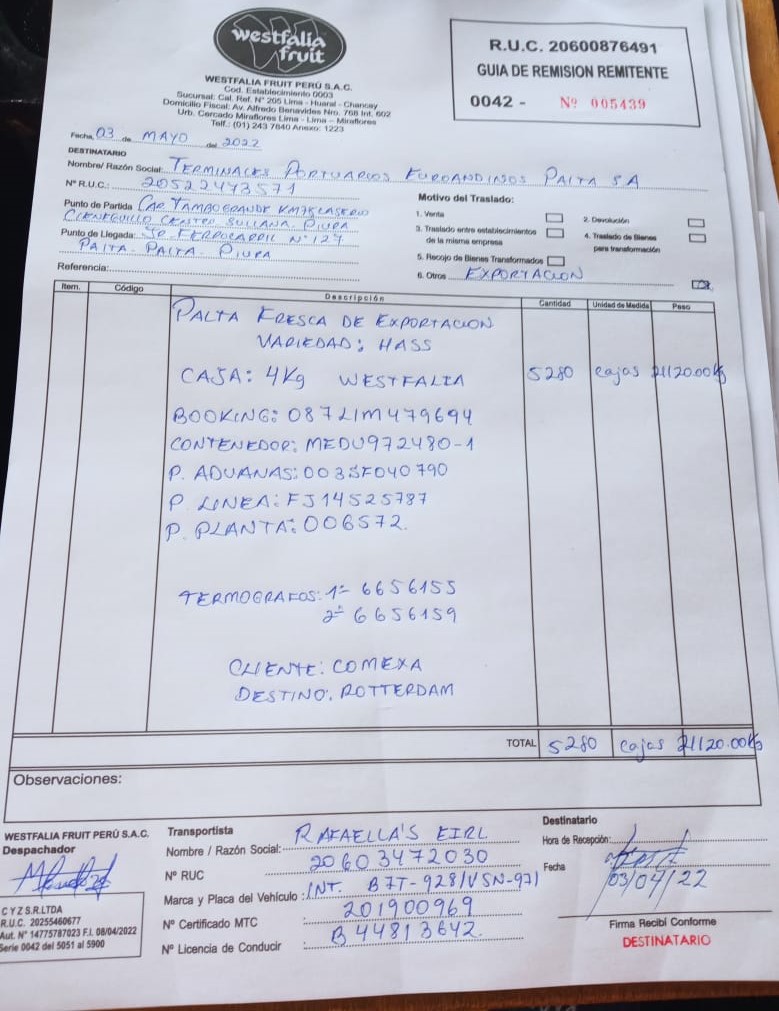 westfalia
fruit
WESTFALIA FRUIT PERÚ S.A.C.
Cod. Establecimiento 0003
Sucursal: Cal. Ref. Nº 205 Lima - Huaral - Chancay
Domicilio Fiscal: Av. Alfredo Benavides Nro. 768 Int. 602
Urb. Cercado Miraflores Lima - Lima - Miraflores
Telf.: (01) 243 7840 Anexo: 1223
R.U.C. 20600876491
GUIA DE REMISION REMITENTE
0042 - Nº 005439
Fecha, 03 de MAYO del 2022
DESTINATARIO
Nombre/ Razón Social: TERMINALES PORTUARIOS EUROANDINOS PAITA SA
Nº R.U.C.: 20522473571
Punto de Partida CAR. TAMBOGRANDE KM75 CASERIO
CIENEGUILLO CENTRO SULLANA. PIURA
Punto de Llegada: JR. FERROCARRIL Nº 127
PAITA. PAITA. PIURA
Referencia:
Motivo del Traslado:
1. Venta
2. Devolución
3. Traslado entre establecimientos
de la misma empresa
4. Traslado de Bienes
para transformación
5. Recojo de Bienes Transformados
6. Otros EXPORTACION
Item. Código Descripción Cantidad Unidad de Medida Peso
PALTA FRESCA DE EXPORTACION
VARIEDAD: HASS
CAJA: 4Kg WESTFALIA 5280 cajas 21120.00Kg
BOOKING: 087LIM479694
CONTENEDOR: MEDU972480-1
P. ADUANAS: 0035F040790
P. LINEA: FJ14525787
P. PLANTA: 006572.
TERMOGRAFOS: 1º 6656155
2º 6656159
CLIENTE: COMEXA
DESTINO: ROTTERDAM
TOTAL 5280 cajas 21120.00Kg
Observaciones:
WESTFALIA FRUIT PERÚ S.A.C.
Despachador
C Y Z S.R.LTDA
R.U.C. 20255460677
Aut. Nº 14775787023 F.I. 08/04/2022
Serie 0042 del 5051 al 5900
Transportista
Nombre / Razón Social: RAFAELLA'S EIRL
Nº RUC 20603472030
Marca y Placa del Vehículo: INT. B7T-928/VSN-971
Nº Certificado MTC 201900969
Nº Licencia de Conducir B44813642.
Destinatario
Hora de Recepción:
Fecha 03/04/22
Firma Recibí Conforme
DESTINATARIO